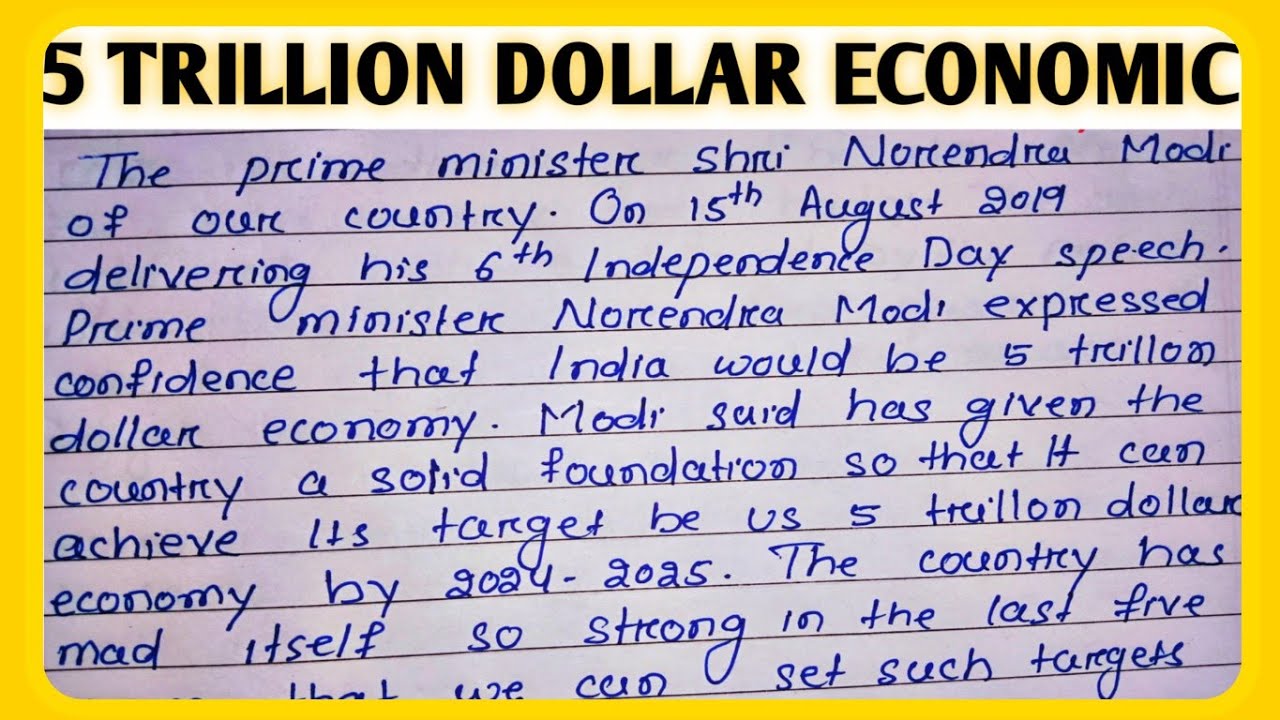 5 TRILLION DOLLAR ECONOMIC
The prime minister Shri Norendra Modi
of our country. On 15th August 2019
delivering his 6th Independence Day speech.
Prime minister Norendra Modi expressed
confidence that India would be 5 trillon
dollar economy. Modi said has given the
country a solid foundation so that It can
achieve Its target be us 5 trillon dollar
economy by 2024-2025. The country has
mad itself so strong in the last five
that we can set such targets